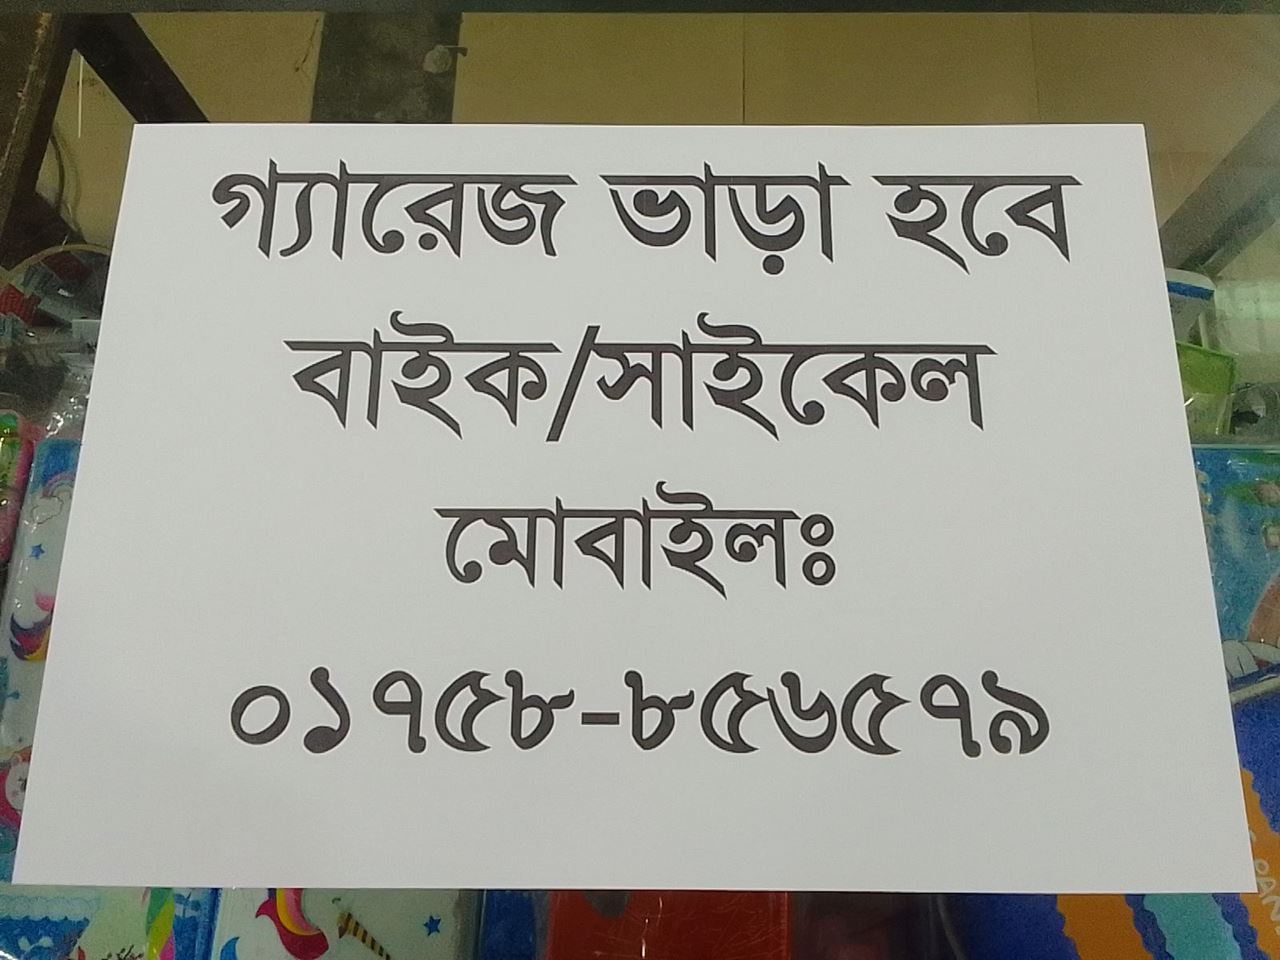 গ্যারেজ ভাড়া হবে
বাইক/সাইকেল
মোবাইলঃ
০১৭৫৮-৮৫৬৫৭৯